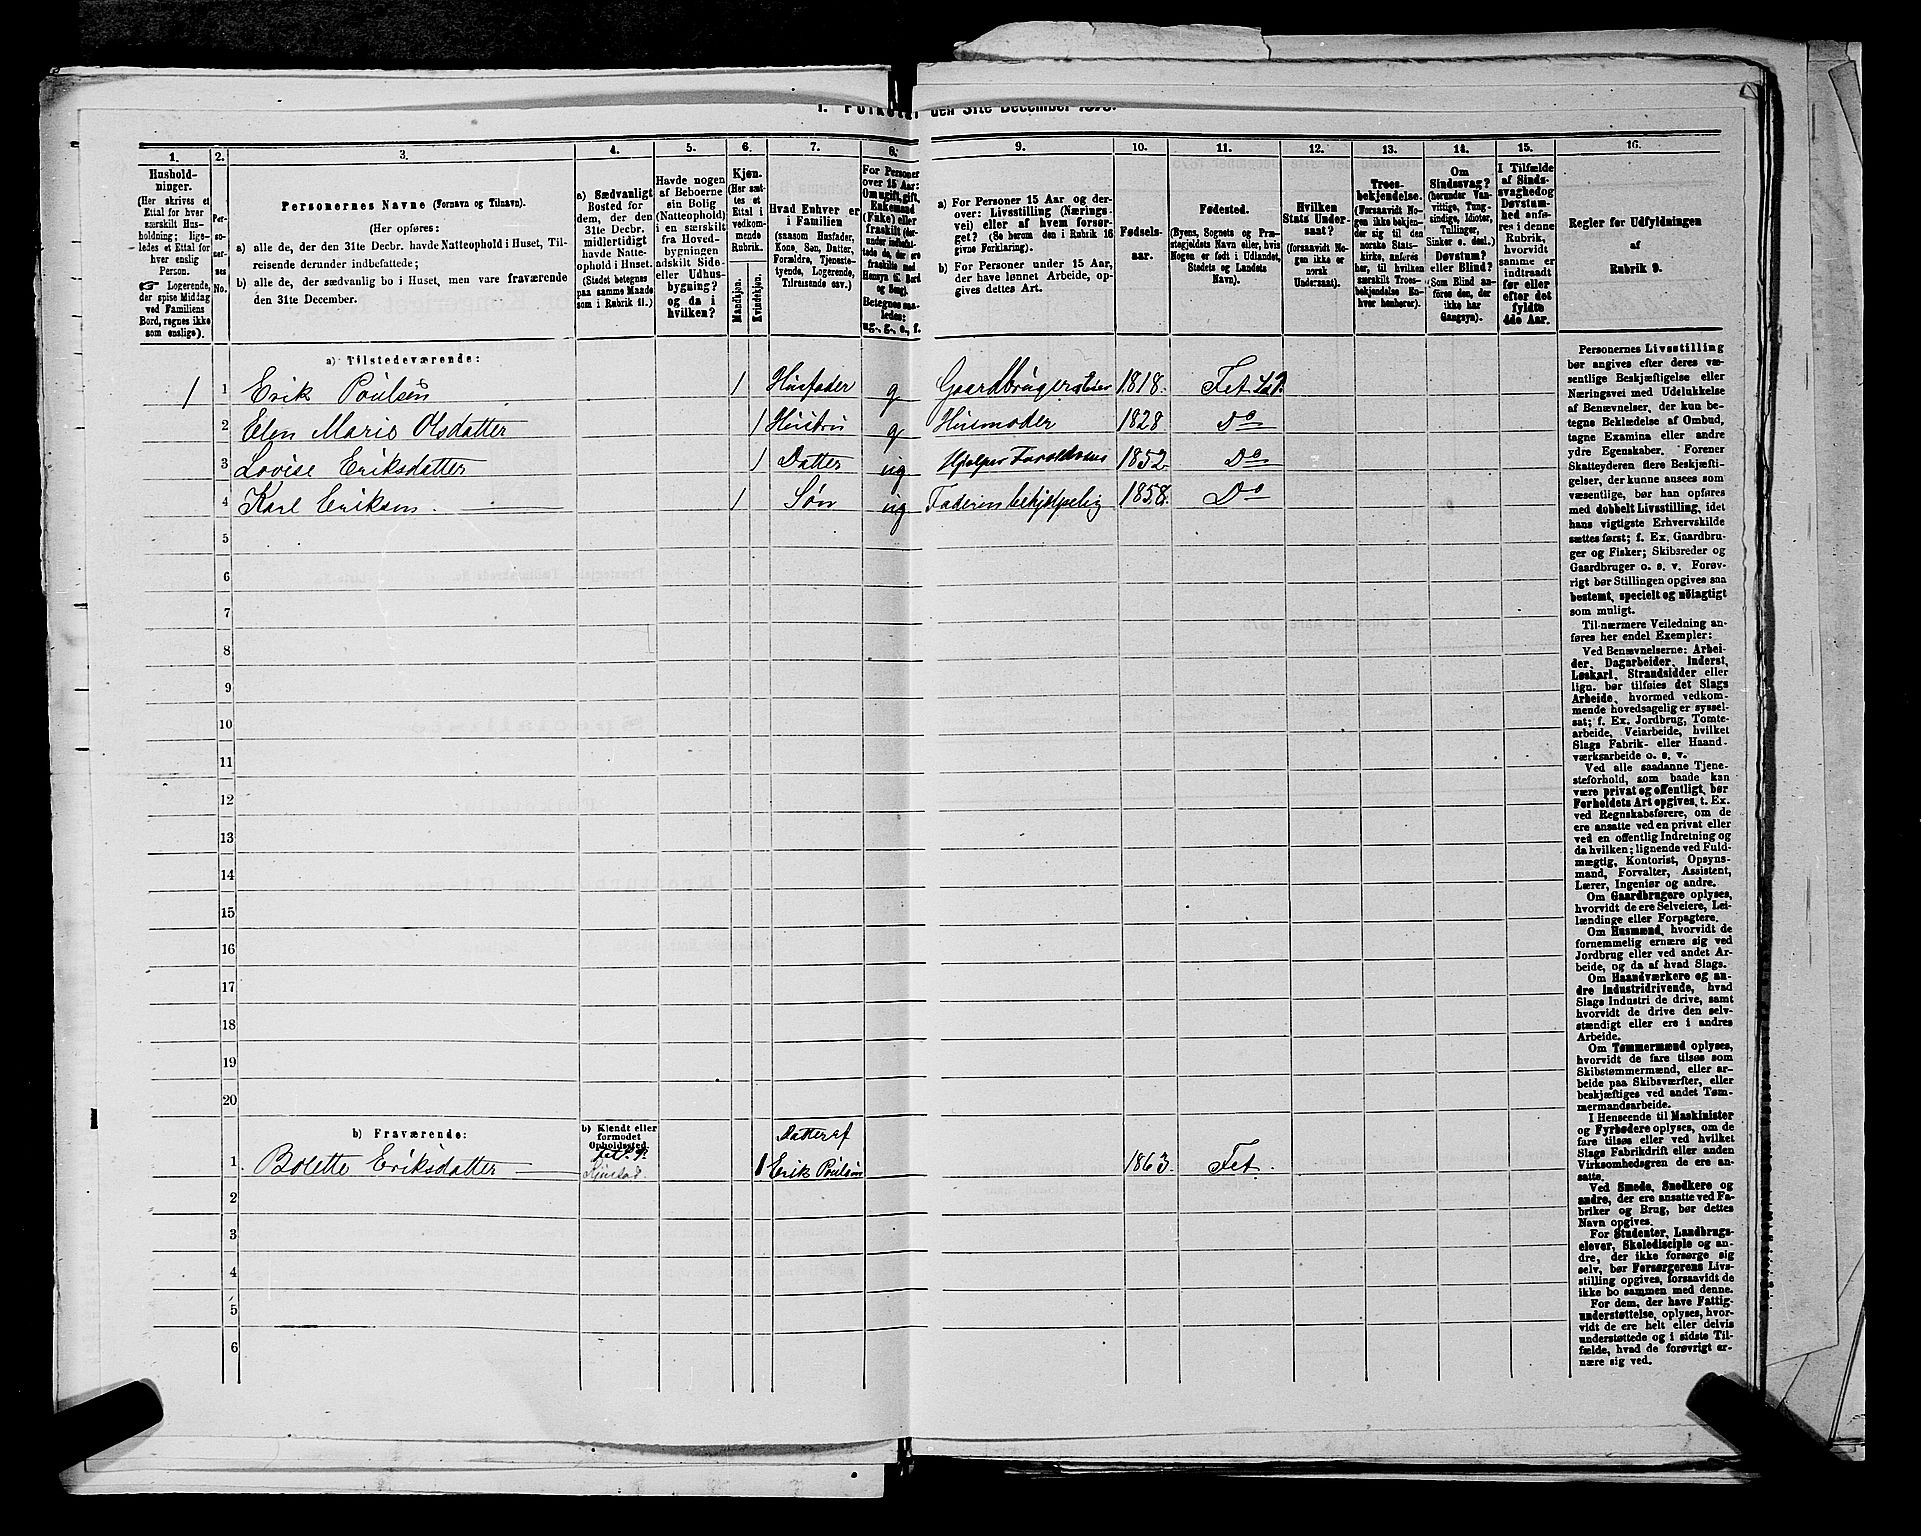 1. Folketal den 31te December 1875.
1.
Hushold-
ninger.
(Her skrives et
Ettal for hver
særskilt Hus-
holdning; lige-
ledes et Ettal for
hver enslig
Person.
☞ Logerende,
der spise Middag
ved Familiens
Bord, regnes ikke
som enslige).
2.
Per-
so-
ner-
nes
No.
3.
Personernes Navne (Fornavn og Tilnavn).
(Her opføres:
a) alle de, der den 31te Decbr. havde Natteophold i Huset, Til-
reisende derunder indbefattede;
b) alle de, der sædvanlig bo i Huset, men vare fraværende
den 31te December.
4.
a) Sædvanligt
Bosted for
dem, der den
31te Decbr.
midlertidigt
havde Natte-
ophold i Huset.
(Stedet betegnes
paa samme Maade
som i Rubrik 11.)
5.
Havde nogen
af Beboerne
sin Bolig
(Natteophold)
i en særskilt
fra Hovedbygningen
adskilt Side-
eller Udhus-
bygning?
og da i
hvilken?
6.
Kjøn.
(Her sæt-
tes et
Ettal i
vedkom-
mende
Rubrik.
Mandkjøn.
Kvindekjøn.
7.
Hvad Enhver er
i Familien
(saasom Husfader,
Kone, Søn, Datter,
Forældre, Tjeneste-
tyende, Logerende,
Tilreisende osv.)
8.
For Personer
over 15 Aar:
Om ugift, gift,
Enkemand
(Enke) eller
fraskilt
Betegnes saa-
ledes:
ug., g., e., f.
9.
a) For Personer 15 Aar og der-
over: Livsstilling (Nærings-
vei) eller af hvem forsør-
get? (Se herom den i Rubrik 16
givne Forklaring).
b) For Personer under 15 Aar,
der have lønnet Arbeide, op-
gives dettes Art.
10.
Fødsels-
aar.
11.
Fødested.
(Byens, Sognets og Præ-
stegjeldets Navn eller, hvis
Nogen er født i Udlandet,
Stedets og Landets
Navn).
12.
Hvilken
Stats Under-
saat?
(forsaavidt No-
gen ikke er
norsk
Undersaat).
13.
Troes-
bekjendelse.
(Forsaavidt No-
gen ikke bekjen-
der sig til den
norske Stats-
kirke, anføres
her, til hvilken
særskilt Troes-
bekjendelse En-
hver henhører).
14.
Om
Sindssvag?
(herunder Van-
vittige, Tung-
sindige, Idioter,
Sinker o. desl.)
Døvstum?
eller Blind?
(Som Blind an-
føres den, der
ikke har
Gangsyn).
15.
I Tilfælde
af Sinds-
svaghed og
Døvstum-
hed anfø-
res i denne
Rubrik,
hvorvidt
samme er
indtraadt
før eller
efter det
fyldte
4de Aar.
16.
Regler for Udfyldningen
af
Rubrik 9.
a) Tilstedeværende:
1 1 Erik Poulsen 1 Husfader g Gaardbruger 1818. Fet
2 Elen Marie Olsdatter 1 Hustru g Husmoder 1828 Do
3 Lovise Eriksdatter 1 Datter ug Hjelper Foreldrene 1852 Do
4 Karl Eriksen. 1 Søn ug Faderen behjelpelig 1858. Do
5
6
7
8
9
10
11
12
13
14
15
16
17
18
19
20
b) Fraværende:
b) Kjendt eller
formodet
Opholdssted.
Datter af
1 Bolette Eriksdatter 1 Erik Poulsen 1863. Fet.
2
3
4
5
6
Personernes Livsstilling
bør angives efter deres væ-
sentlige Beskjæftigelse eller
Næringsvei med Udelukkelse
af Benævnelser, der kun be-
tegne Beklædelse af Ombud,
tagne Examina eller andre
ydre Egenskaber. Forener
Skatteyderen flere Beskjæfti-
gelser, der kunne ansees som
væsentlige, bør han opføres
med dobbelt Livsstilling, idet
hans vigtigste Erhvervskilde
sættes først; f. Ex. Gaardbru-
ger og Fisker; Skibsreder og
Gaardbruger o. s. v. Forøv-
rigt bør Stillingen opgives saa
bestemt, specielt og nøiagtigt
som muligt.
Til nærmere Veiledning an-
føres her endel Exempler:
Ved Benævnelserne: Arbei-
der, Dagarbeider, Inderst,
Løskarl, Strandsidder eller
lign. bør tilføies det Slags
Arbeide, hvormed vedkom-
mende hovedsagelig er syssel-
sat; f. Ex. Jordbrug, Tomte-
arbeide, Veiarbeide, hvilket
Slags Fabrik- eller Haand-
værksarbeide o. s. v.
Ved alle saadanne Tjene-
steforhold, som baade kan
være privat og offentligt, bør
Forholdets Art opgives, t. Ex.
ved Regnskabsførere, om de
ere ansatte ved en privat eller
ved en offentlig Indretning og
da hvilken; lignende ved Fuld-
mægtig, Kontorist, Opsyns-
mand, Forvalter, Assistent,
Lærer, Ingeniør og andre.
Om Gaardbrugere oplyses,
hvorvidt de ere Selveiere, Lei-
lændinge eller Forpagtere.
Om Husmænd, hvorvidt de
fornemmelig ernære sig ved
Jordbrug eller ved andet Ar-
beide, og da af hvad Slags.
Om Haandværkere og an-
dre Industridrivende, hvad
Slags Industri de drive, samt
hvorvidt de drive den selv-
stændigt eller ere i andres
Arbeide.
Om Tømmermænd oplyses,
hvorvidt de fare tilsøs som
Skibstømmermænd, eller ar-
beide paa Skibsværfter, eller
beskjæftiges ved andet Tøm-
mermandsarbeide.
I Henseende til Maskinister
og Fyrbødere oplyses, om de
fare tilsøs eller ved hvilket
Slags Fabrikdrift eller anden
Virksomhedsgren de ere an-
satte.
Ved Smede, Snedkere og
andre, der ere ansatte ved Fa-
briker og Brug, bør dettes
Navn opgives.
For Studenter, Landbrugs-
elever, Skoledisciple og an-
dre, der ikke forsørge sig
selv, bør Forsørgerens Livs-
stilling opgives, forsaavidt de
ikke bo sammen med denne.
For dem, der have Fattig-
understøttelse, oplyses, hvor-
vidt de ere helt eller delvis
understøttede og i sidste Til-
fælde, hvad de forøvrigt er-
nære sig ved.